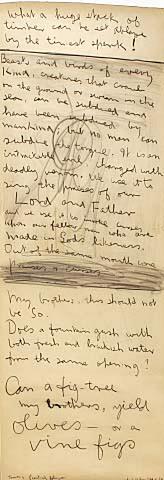 What a huge stack of
timber can be set ablaze
by the tiniest spark!
Beasts and birds of every
kind, creatures that crawl
on the ground or swim in the
sea, can be subdued and
have been subdued by
mankind but no man can
subdue the tongue. It is an
intractable evil, charged with
deadly venom. We use it to
sing the praises of our
Lord and Father
and we use it to invoke curses
upon our fellow men who are
made in God's likeness.
Out of the same mouth come
Praises & curses
My brothers, this should not
be so.
Does a fountain gush with
both fresh and brackish water
from the same opening?
Can a fig-tree
my brothers, yield
olives - or a
vine figs